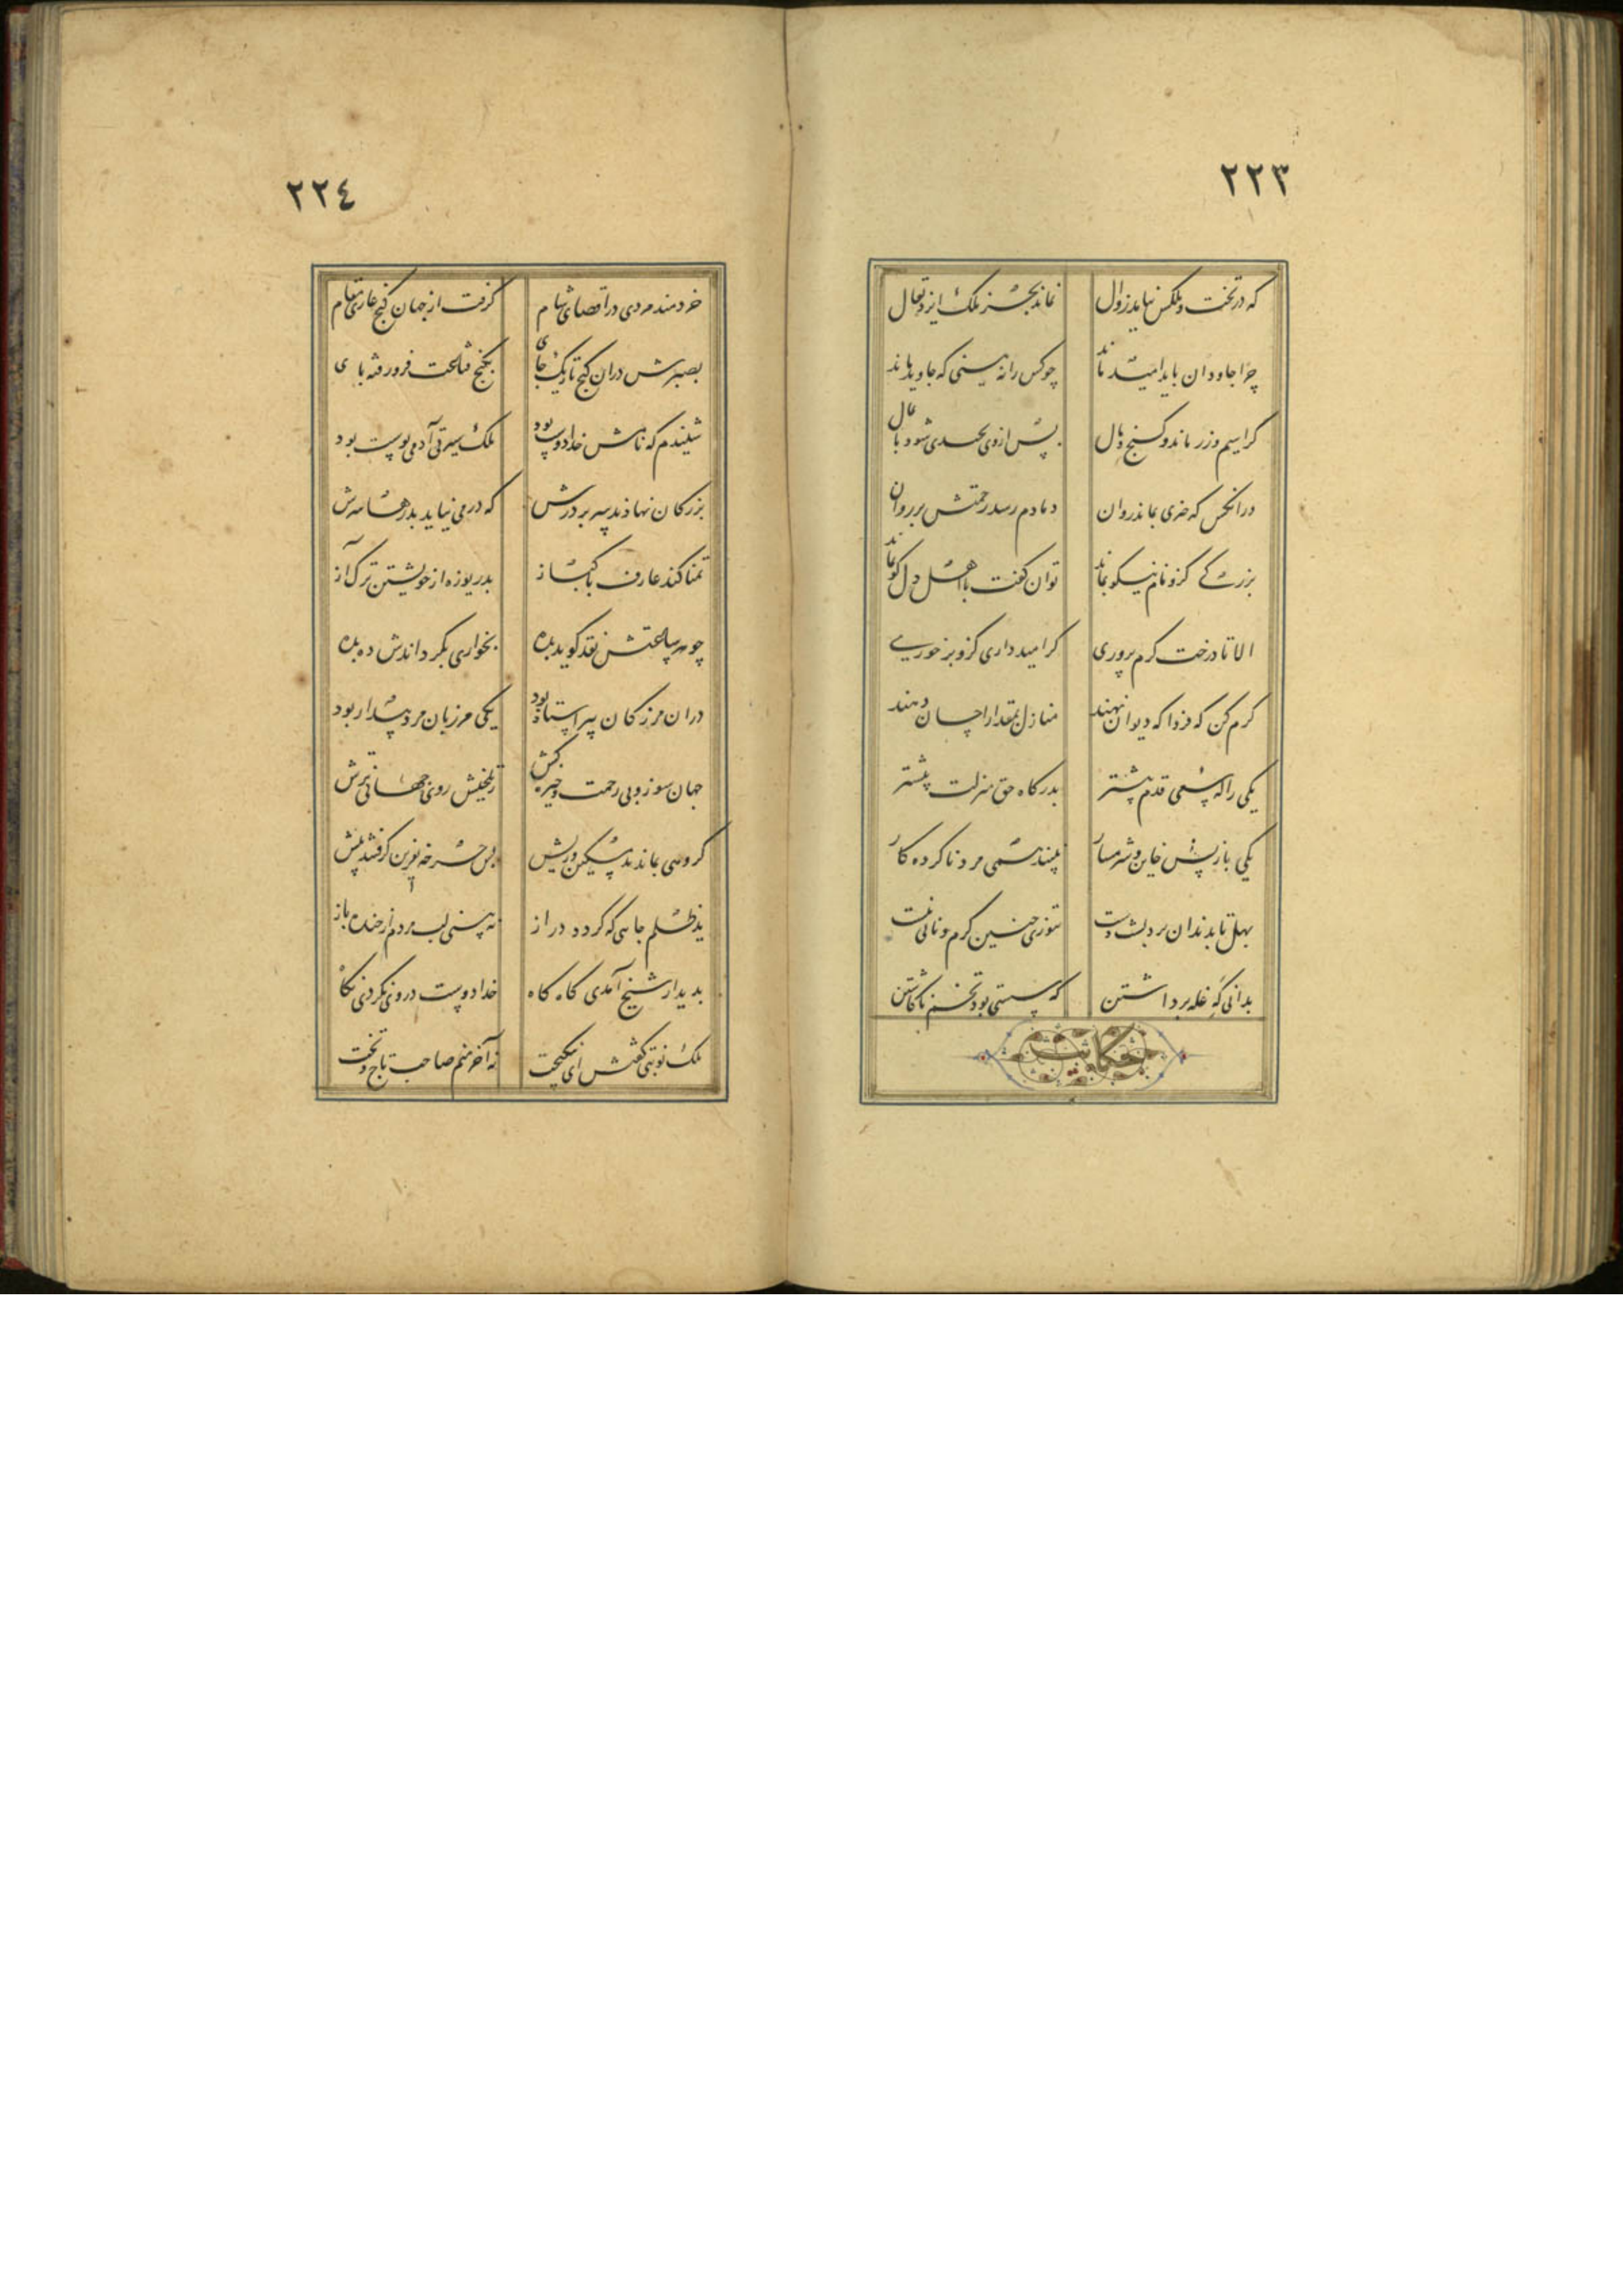 ٢٢٣
که در تخت و ملکش نیاید زوال نماند بجز ملک ایزد تعال
چرا جاودان باید امید ماند چو کس را نه بینی که جاوید ماند
کرا سیم و زر ماند و گنج و مال پس از وی بچندی شود پایمال
در انکس که خیری بماند روان دمادم رسد رحمتش بر روان
بزرگی کزو نام نیکو بماند توان گفت با اهل دل کو بماند
الا تا درخت کرم پروری کر امیدداری کزو بر خوری
کرم کن که فردا که دیوان نهند منازل بمقدار احسان دهند
یکی را که سعی قدم پیشتر بدرگاه حق منزلت پیشتر
یکی باز پس خاین و شرمسار پسندد همی مرد ناکرده کار
بهل تا بدندان برد پشت دست تنوری چنین گرم و نانی نبست
بدانی گه غله برداشتن که سستی بود تخم ناکاشتن
حکایت
٢٢٤
خردمند مردی در اقصای شام گرفت از جهان کنج غاری مقام
بصبرش دران کنج تاریک جای بگنج قناعت فرو رفته پای
شنیدم که نامش خدادوست بود ملک سیرتی آدمی پوست بود
بزرگان نهادند سر بر درش که در می نیاید بدرها سرش
تمنا کند عارف پاکباز بدریوزه از خویشتن ترک آز
چو هر ساعتش نفس گوید بده بخواری بگرداندش ده بده
دران مرز کان پیر استاده بود یکی مرزبان مردم آزار بود
جهان سوز و بی رحمت و خیره کش ز تلخیش روی جهانی ترش
گروهی بماندند مسکین و ریش پس چرخه نفرین گرفتند پیش
ید ظلم جایی که گردد دراز نه بینی لب مردم از خنده باز
بدیدار شیخ آمدی گاه گاه خدادوست در وی نکردی نگاه
ملک نوبتی گفتش ای نیکبخت نه آخر منم صاحب تاج و تخت